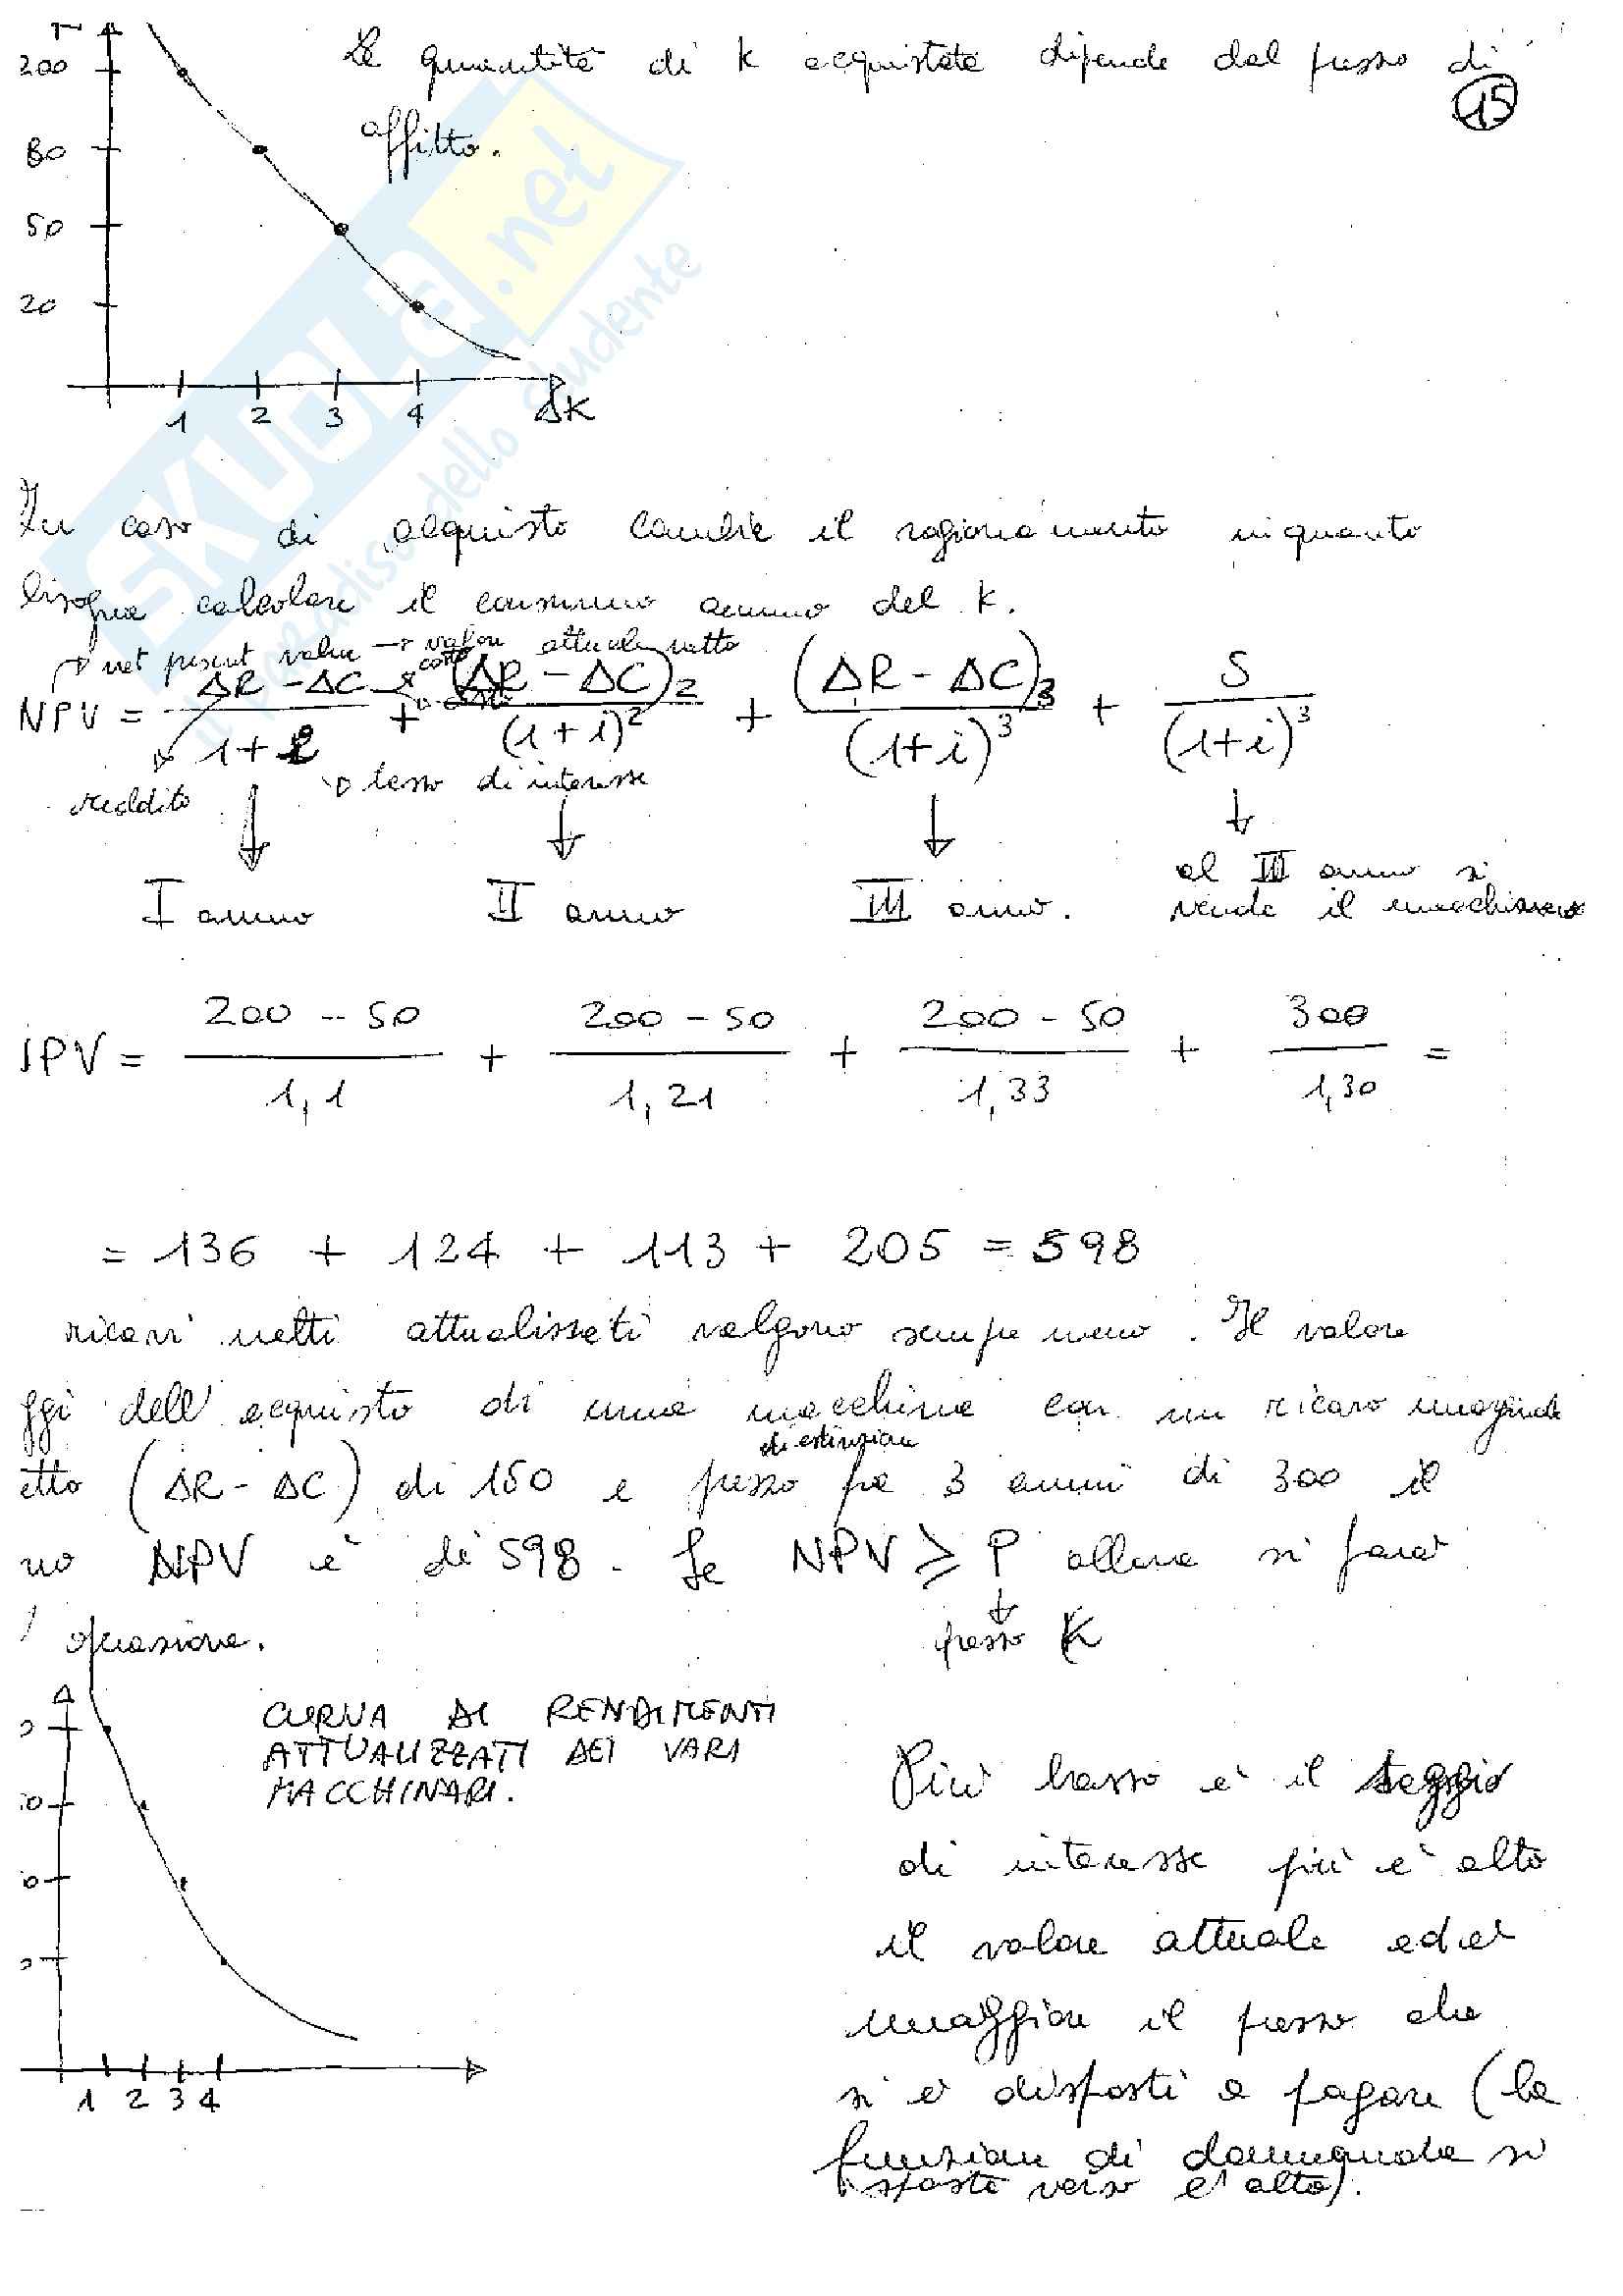 r
200
80
50
20
1 2 3 4 ΔK
La quantità di K acquistata dipende dal prezzo di
affitto.
15
SKUOLA.net
il paradiso dello studente
In caso di acquisto cambia il ragionamento inquanto
bisogna calcolare il consumo annuo del K.
net present value → valore attuale netto
NPV = ΔR - ΔC / 1 + i + (ΔR - ΔC)2 / (1 + i)^2 + (ΔR - ΔC)3 / (1+i)^3 + S / (1+i)^3
costo
reddito
tasso di interesse
I anno II anno III anno. al III anno si
vende il macchinario
NPV = 200 - 50 / 1,1 + 200 - 50 / 1,21 + 200 - 50 / 1,33 + 300 / 1,30 =
= 136 + 124 + 113 + 205 = 598
ricavi netti attualizzati valgono sempre meno. Il valore
ggi dell'acquisto di una macchina con un ricavo marginale
di estinzione
etto (ΔR - ΔC) di 150 e prezzo fra 3 anni di 300 il
uo NPV è di 598. Se NPV ≥ P allora si farà
l'operazione. prezzo K
0
0
0
0
1 2 3 4
CURVA DI RENDIMENTI
ATTUALIZZATI DEI VARI
MACCHINARI.
Più basso è il saggio
di interesse più è alto
il valore attuale ed è
maggiore il prezzo che
si è disposti a pagare (la
funzione di domanda si
sposta verso l'alto).